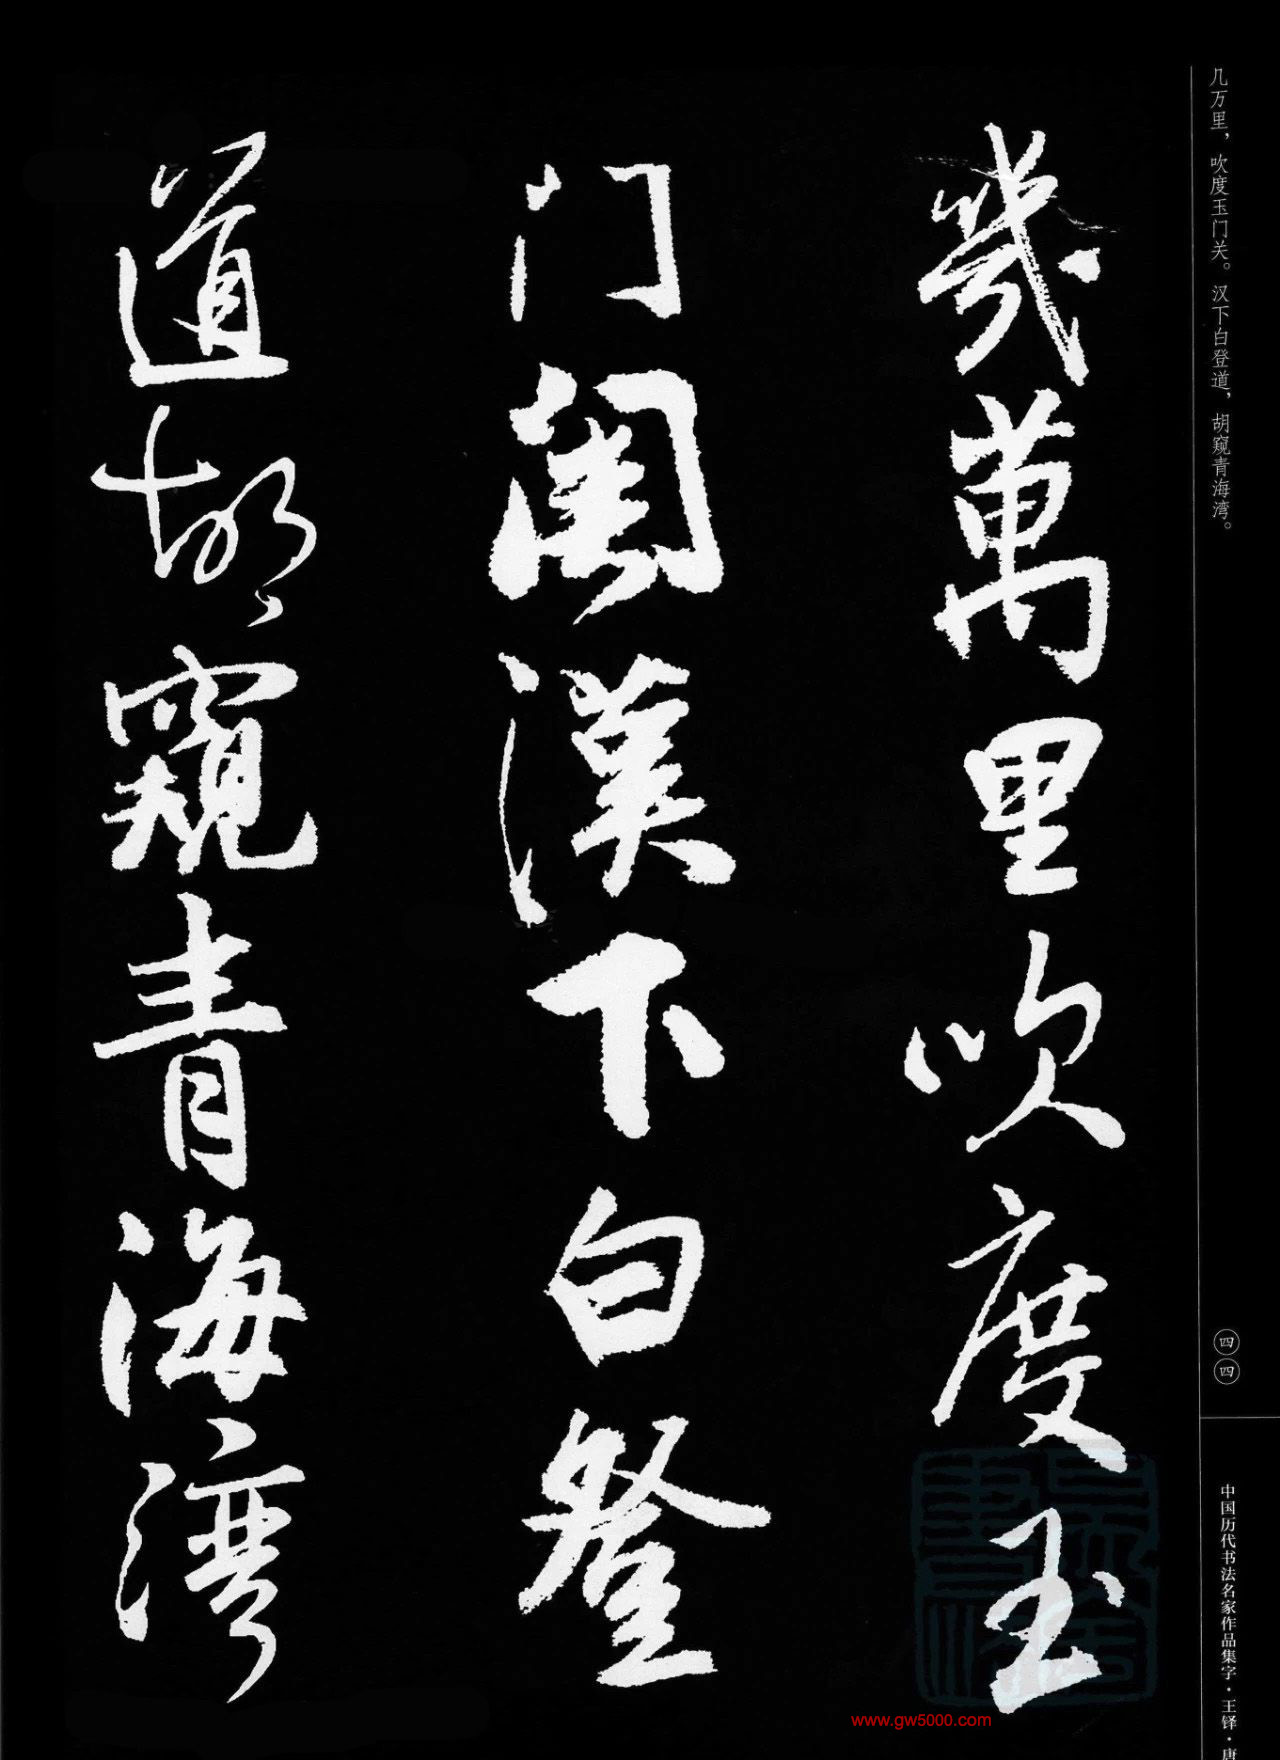 几万里，吹度玉门关。汉下白登道，胡窥青海湾。
幾萬里吹度玉
门関漢下白登
道胡窺青海湾
四四
中国历代书法名家作品集字·王铎·唐
www.gw5000.com